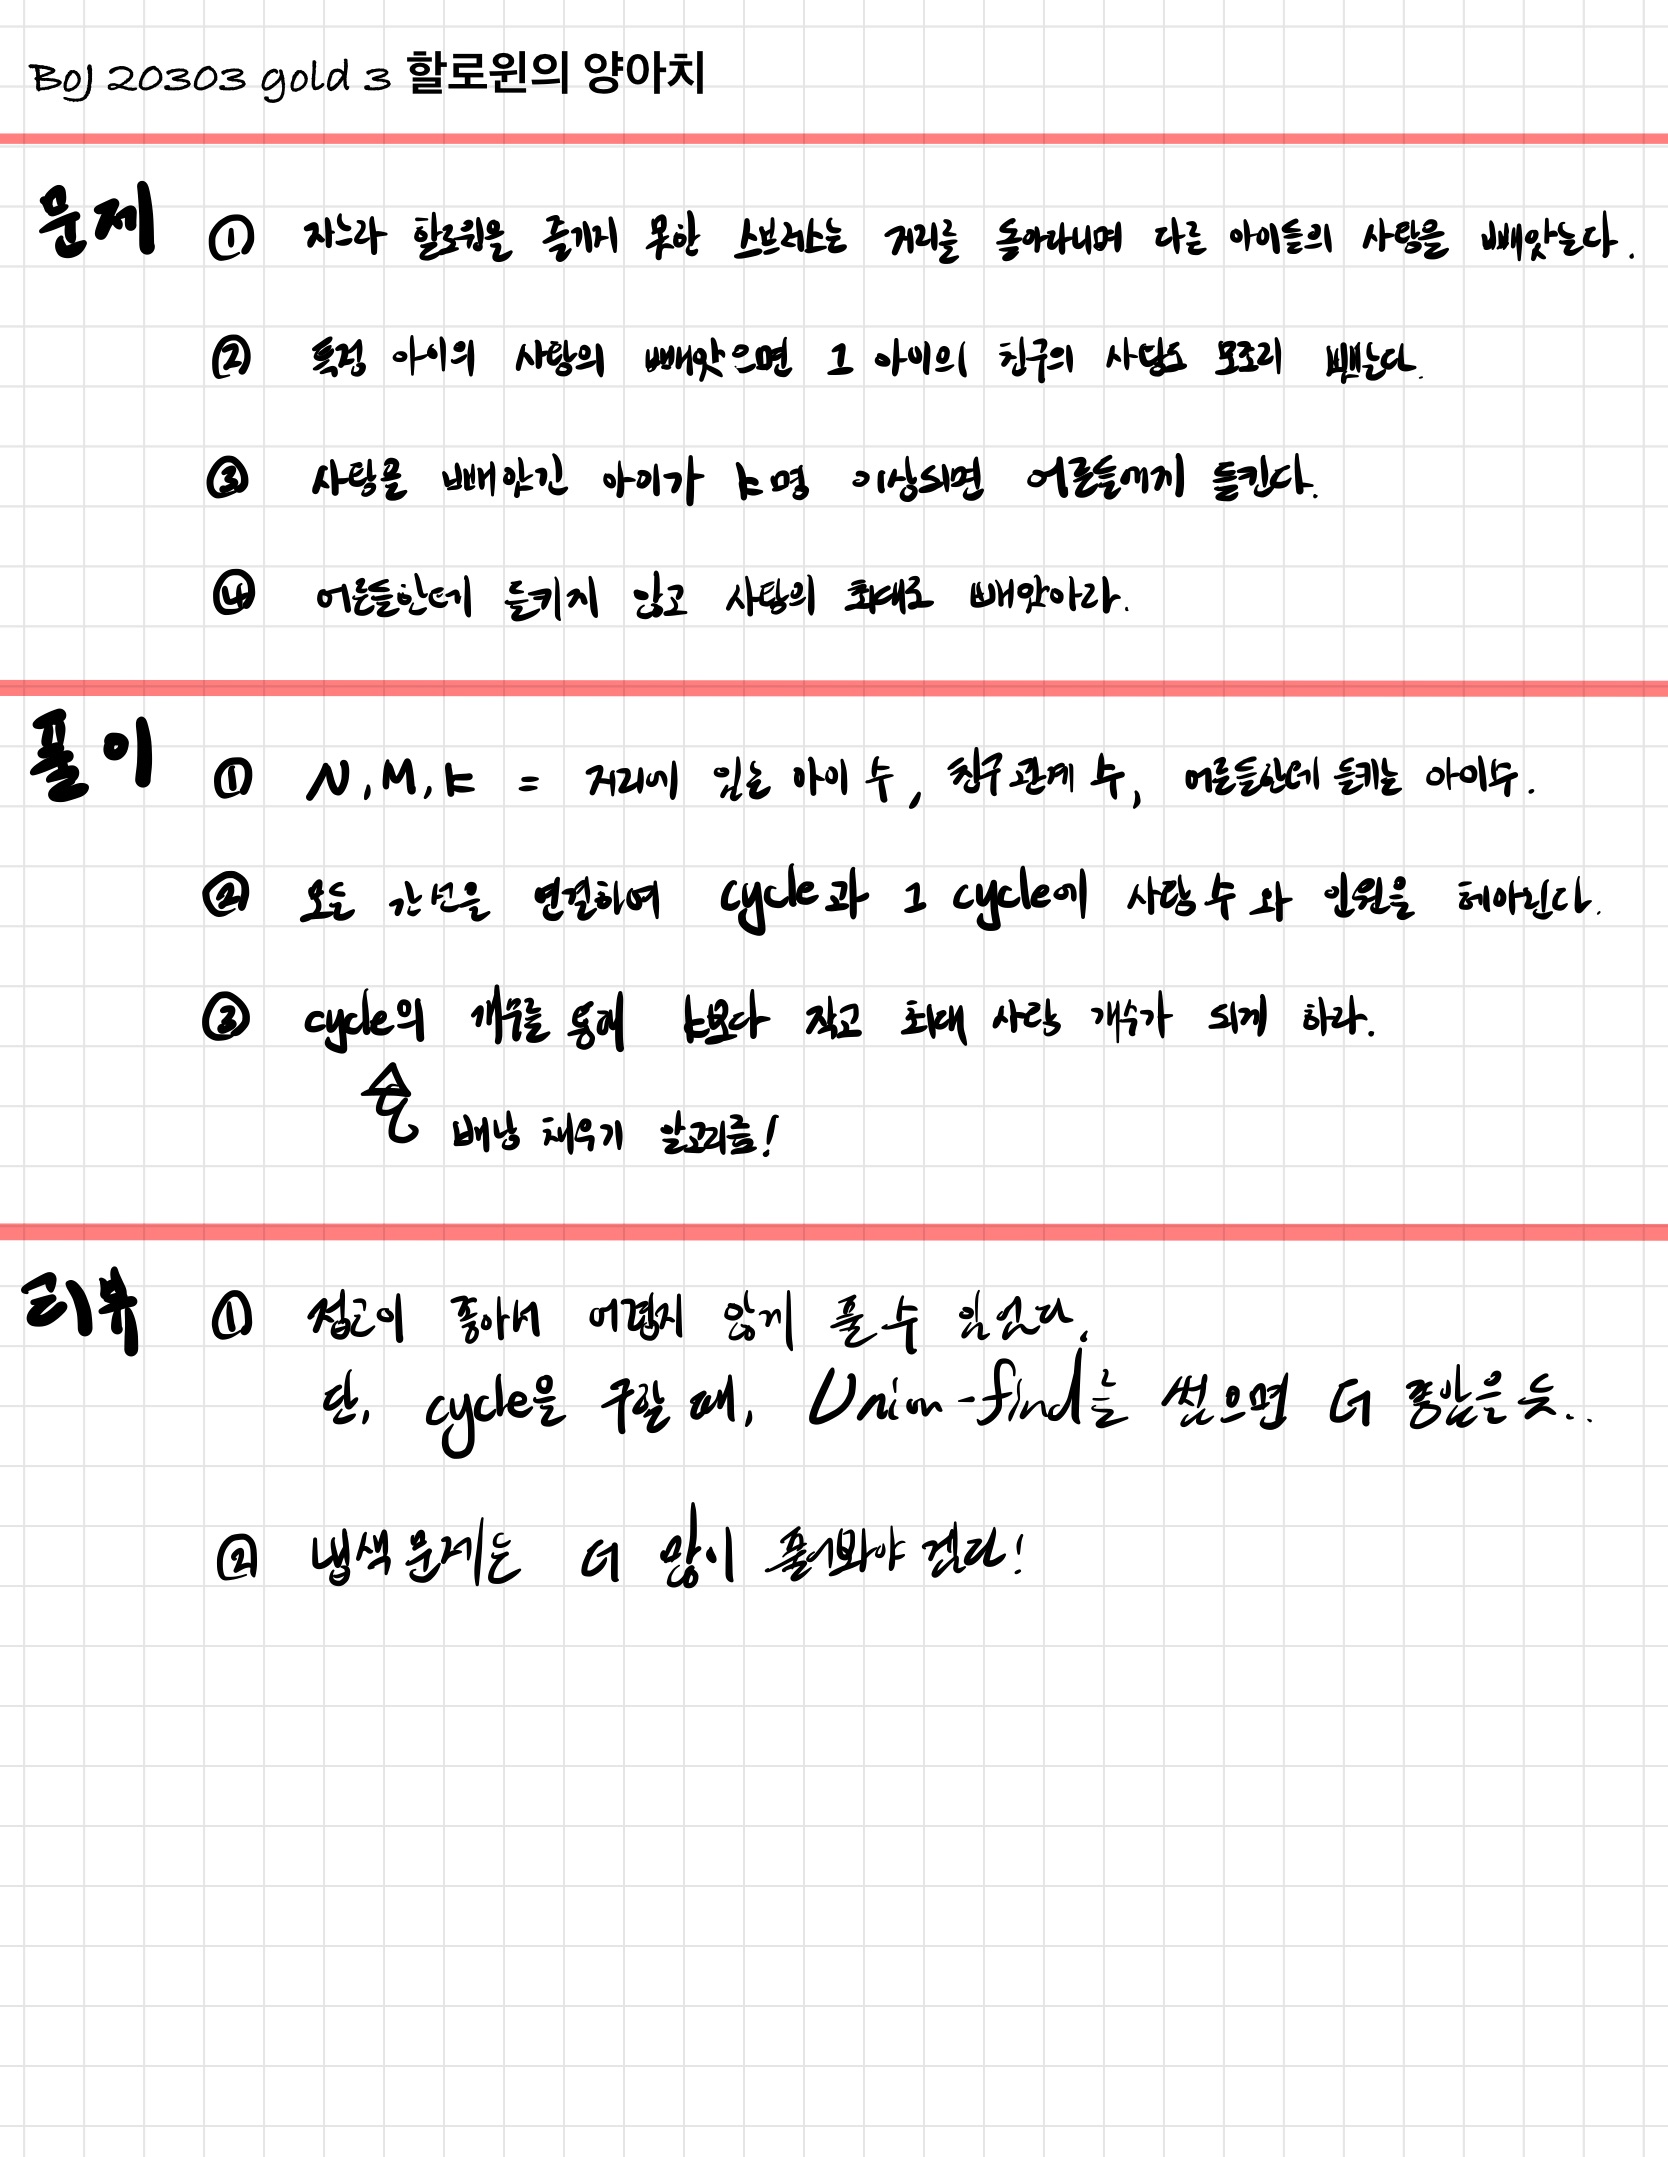 BOJ 20303 gold 3 할로윈의 양아치
문제 ① 자느라 할로윈을 즐기지 못한 스브러스는 거리를 돌아다니며 다른 아이들의 사탕을 빼앗는다.
② 특정 아이의 사탕의 빼앗으면 그 아이의 친구의 사탕도 모조리 뺏는다.
③ 사탕을 빼앗긴 아이가 K명 이상되면 어른들에게 들킨다.
④ 어른들한테 들키지 않고 사탕의 최대로 빼앗아라.
풀이 ① N, M, K = 거리에 있는 아이 수, 친구관계 수, 어른들한테 들키는 아이수.
② 모든 간선을 연결하여 cycle과 그 cycle에 사탕 수와 인원을 헤아린다.
③ cycle의 개수를 통해 K보다 작고 최대 사탕 개수가 되게 하라.
배낭 채우기 알고리즘!
리뷰 ① 접근이 좋아서 어렵지 않게 풀 수 있었다.
단, cycle을 구할 때, Union-find를 썼으면 더 좋았을 듯..
② 냅색 문제는 더 많이 풀어봐야 겠다!